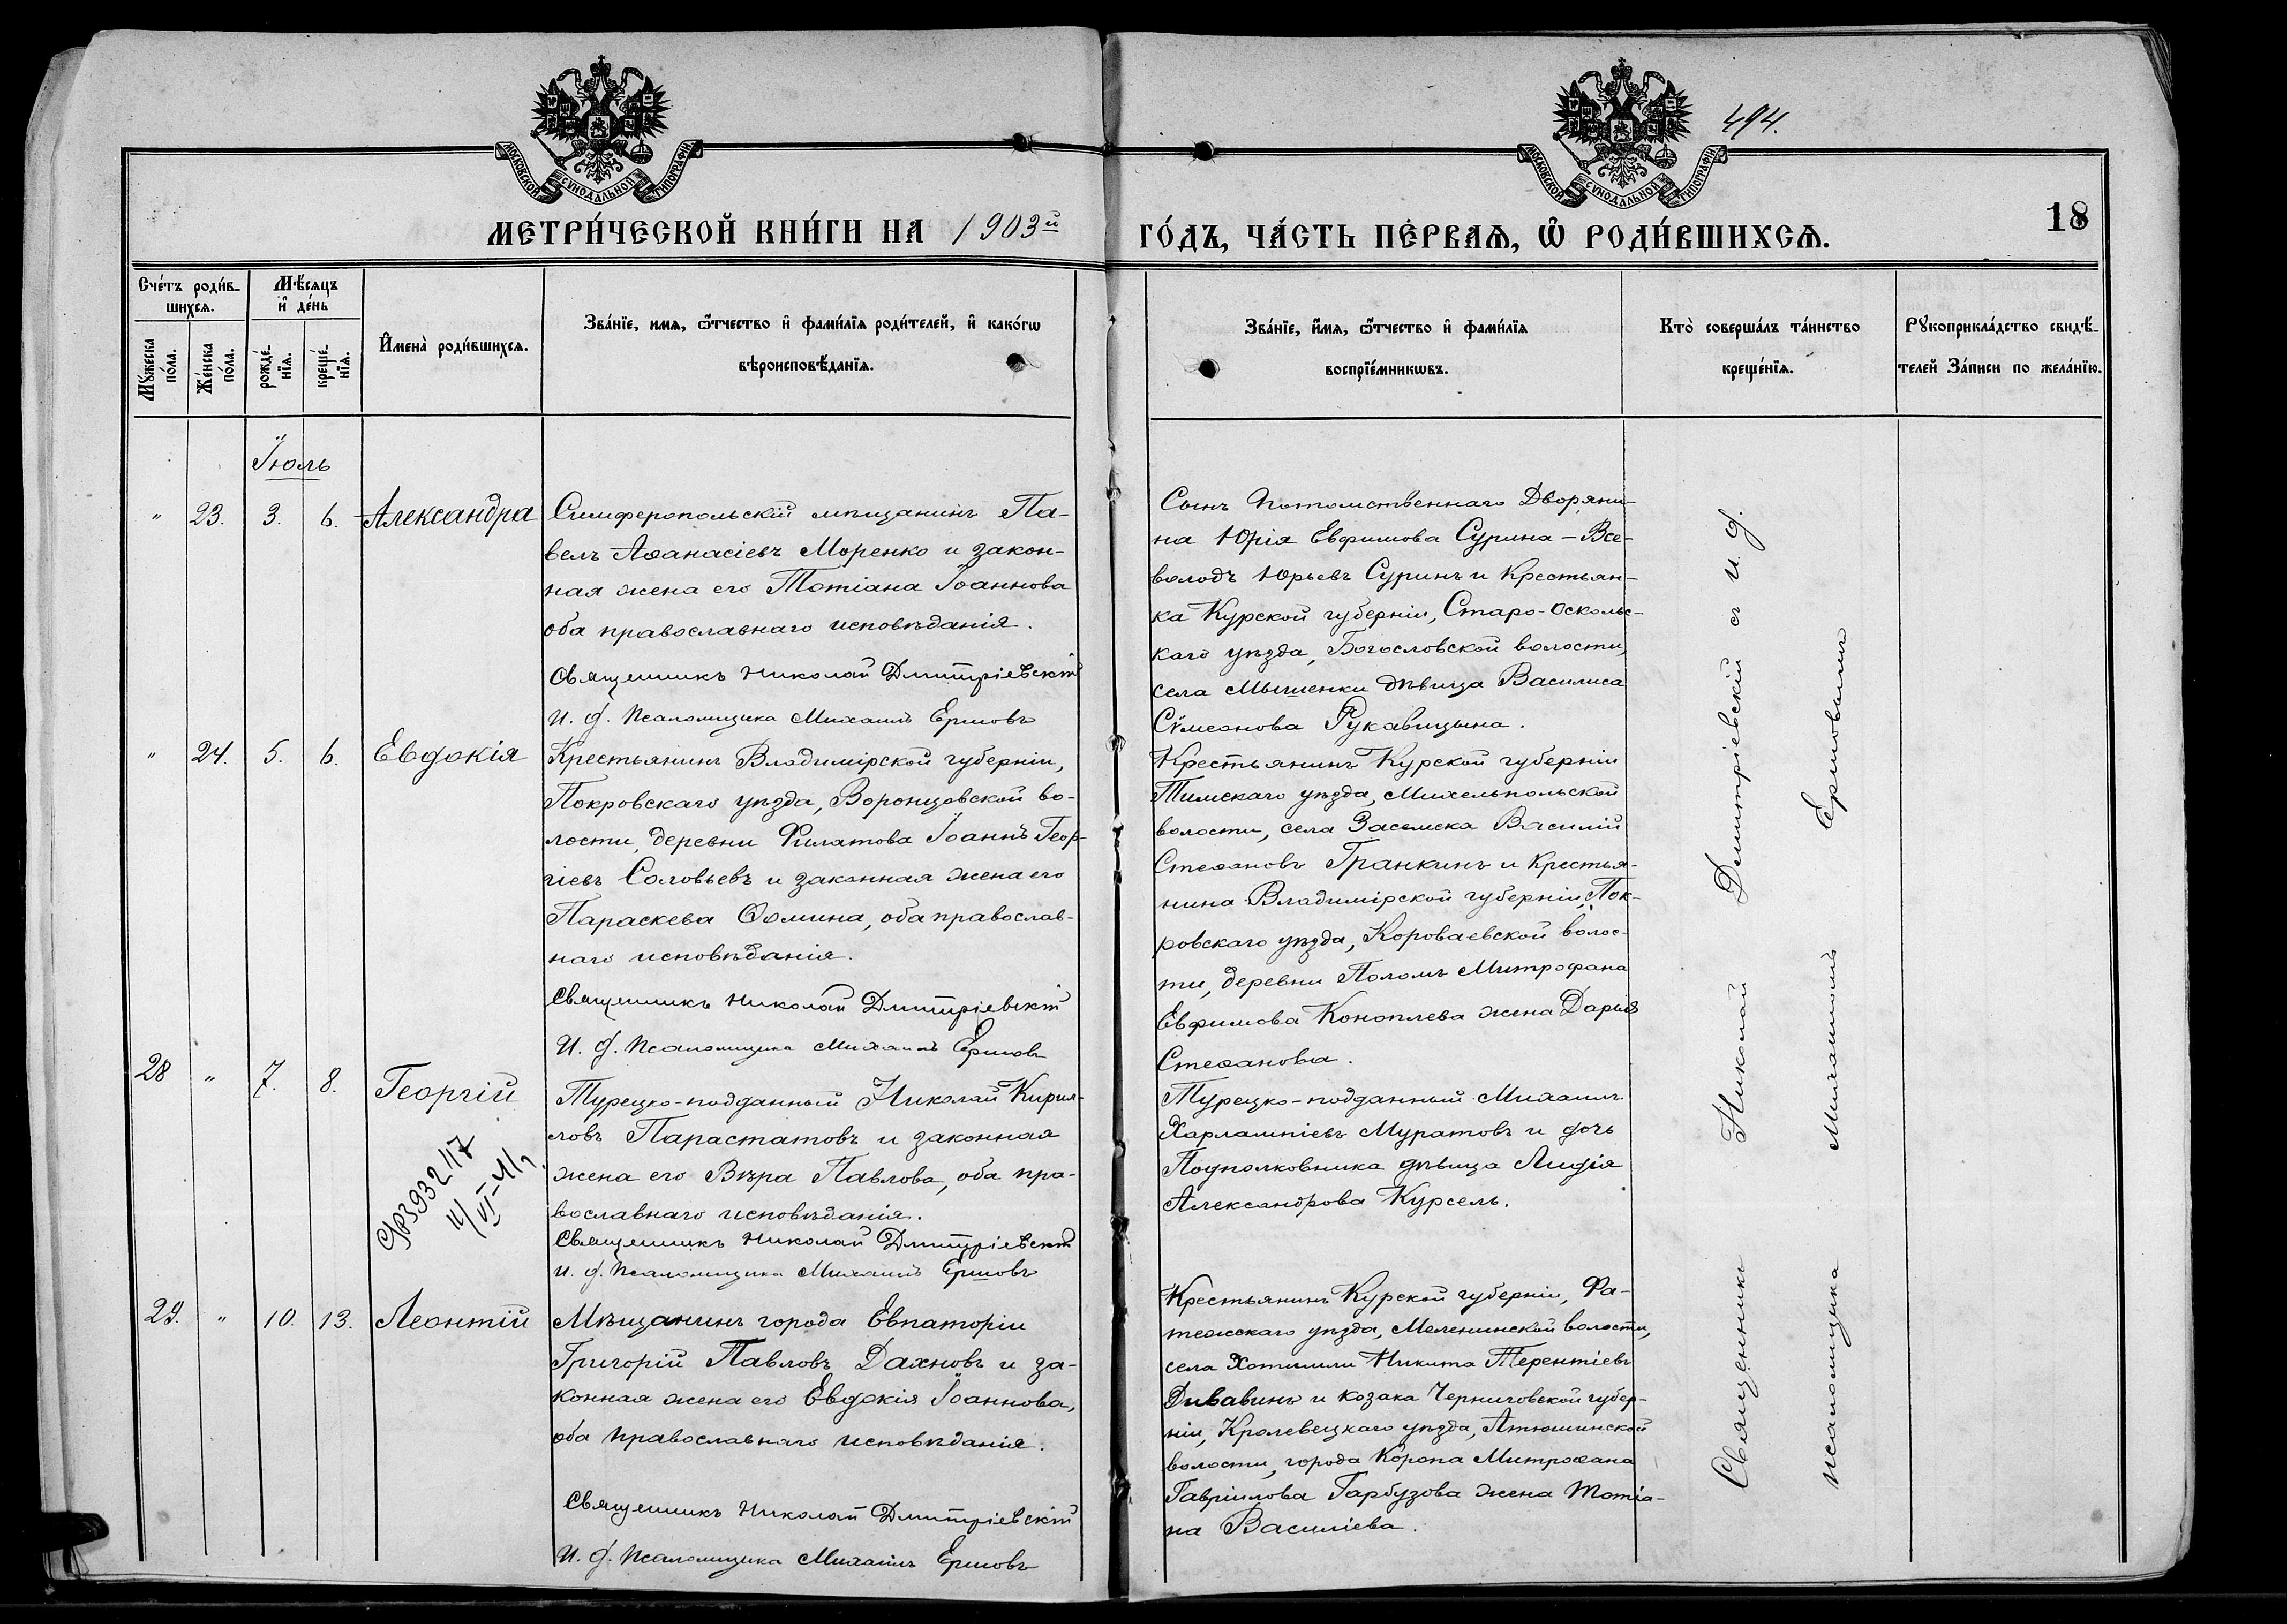 494.
МОСКОВСКОЙ СѴНОДАЛЬНОЙ ТИПОГРАФІИ
МОСКОВСКОЙ СѴНОДАЛЬНОЙ ТИПОГРАФІИ
МЕТРИ́ЧЕСКОЙ КНИ́ГИ НА 1903й
ГО́ДЪ, ЧА́СТЬ ПЕ́РВАѦ, Ѡ РОДИ́ВШИХСѦ.
18
Сче́тъ роди́в-
шихсѧ.
Мꙋ́жеска
по́ла.
Же́нска
по́ла.
Мѣ́сѧцъ
и҆ де́нь
рожде́-
нїѧ.
креще́-
нїѧ.
И҆мена̀ роди́вшихсѧ.
Зва́нїе, имѧ, ѻ҆́тчество и҆ фами́лїѧ роди́телей, и҆ како́гѡ
вѣроисповѣ́данїѧ.
Зва́нїе, и҆́мѧ, ѻ҆́тчество и҆ фами́лїѧ
воспрїе́мникѡвъ.
Кто̀ соверша́лъ та́инство
креще́нїѧ.
Рꙋкоприкла́дство свидѣ́-
телей За́писи по жела́нїю.
Іюль
" 23. 3. 6. Александра
Симферопольскій мѣщанинъ Па-
велъ Аѳанасіевъ Моренко и закон-
ная жена его Татіана Іоаннова
оба православнаго исповѣданія.
Священникъ Николай Дмитріевскій
И. д. Псаломщика Михаилъ Ершовъ
Сынъ Потомственнаго Дворяни-
на Юрія Евфимова Сурина – Все-
володъ Юрьевъ Суринъ и Крестьян-
ка Курской губерніи, Старо-Осколь-
каго уѣзда, Богословской волости,
села Мышенки дѣвица Василиса
Сѵмеонова Рукавицына.
" 24. 5. 6. Евдокія
Крестьянинъ Владимірской губерніи,
Покровскаго уѣзда, Воронцовской во-
лости, деревни Филатова Іоаннъ Геор-
гіевъ Соловьевъ и законная жена его
Параскева Ѳомина, оба православ-
наго исповѣданія.
Священникъ Николай Дмитріевскій
И. д. Псаломщика Михаилъ Ершовъ
Крестьянинъ Курской губерніи
Тимскаго уѣзда, Михельпольской
волости, села Засемска Василій
Стефановъ Гранкинъ и Крестья-
нина Владимірской губерніи, Пок-
ровскаго уѣзда, Короваевской волос-
ти, деревни Поломъ Митрофана
Евфимова Коноплева жена Дарья
Стефанова.
28 " 7. 8. Георгій
Турецко-подданный Николай Кирил-
ловъ Парастатовъ и законная
жена его Вѣра Павлова, оба пра-
вославнаго исповѣданія.
Священникъ Николай Дмитріевскій
И. д. Псаломщика Михаилъ Ершовъ
Турецко-подданный Михаилъ
Харлампіевъ Муратовъ и дочь
Подполковника дѣвица Лидія
Александрова Курсель.
29. " 10. 13. Леонтій
Мѣщанинъ города Евпаторіи
Григорій Павловъ Дахновъ и за-
конная жена его Евдокія Іоаннова,
оба православнаго исповѣданія.
Священникъ Николай Дмитріевскій
И. д. Псаломщика Михаилъ Ершовъ
Крестьянинъ Курской губерніи, Фа-
тежскаго уѣзда, Меленинской волости,
села Хотимли Никита Терентіевъ
Дивавинъ и козака Черниговской губер-
ніи, Кролевецкаго уѣзда, Атюшинской
волости, города Коропа Митрофана
Гавріилова Гарбузова жена Татіа-
на Василіева.
Священникъ Николай Дмитріевскій съ И. д.
псаломщика Михаиломъ Ершовымъ